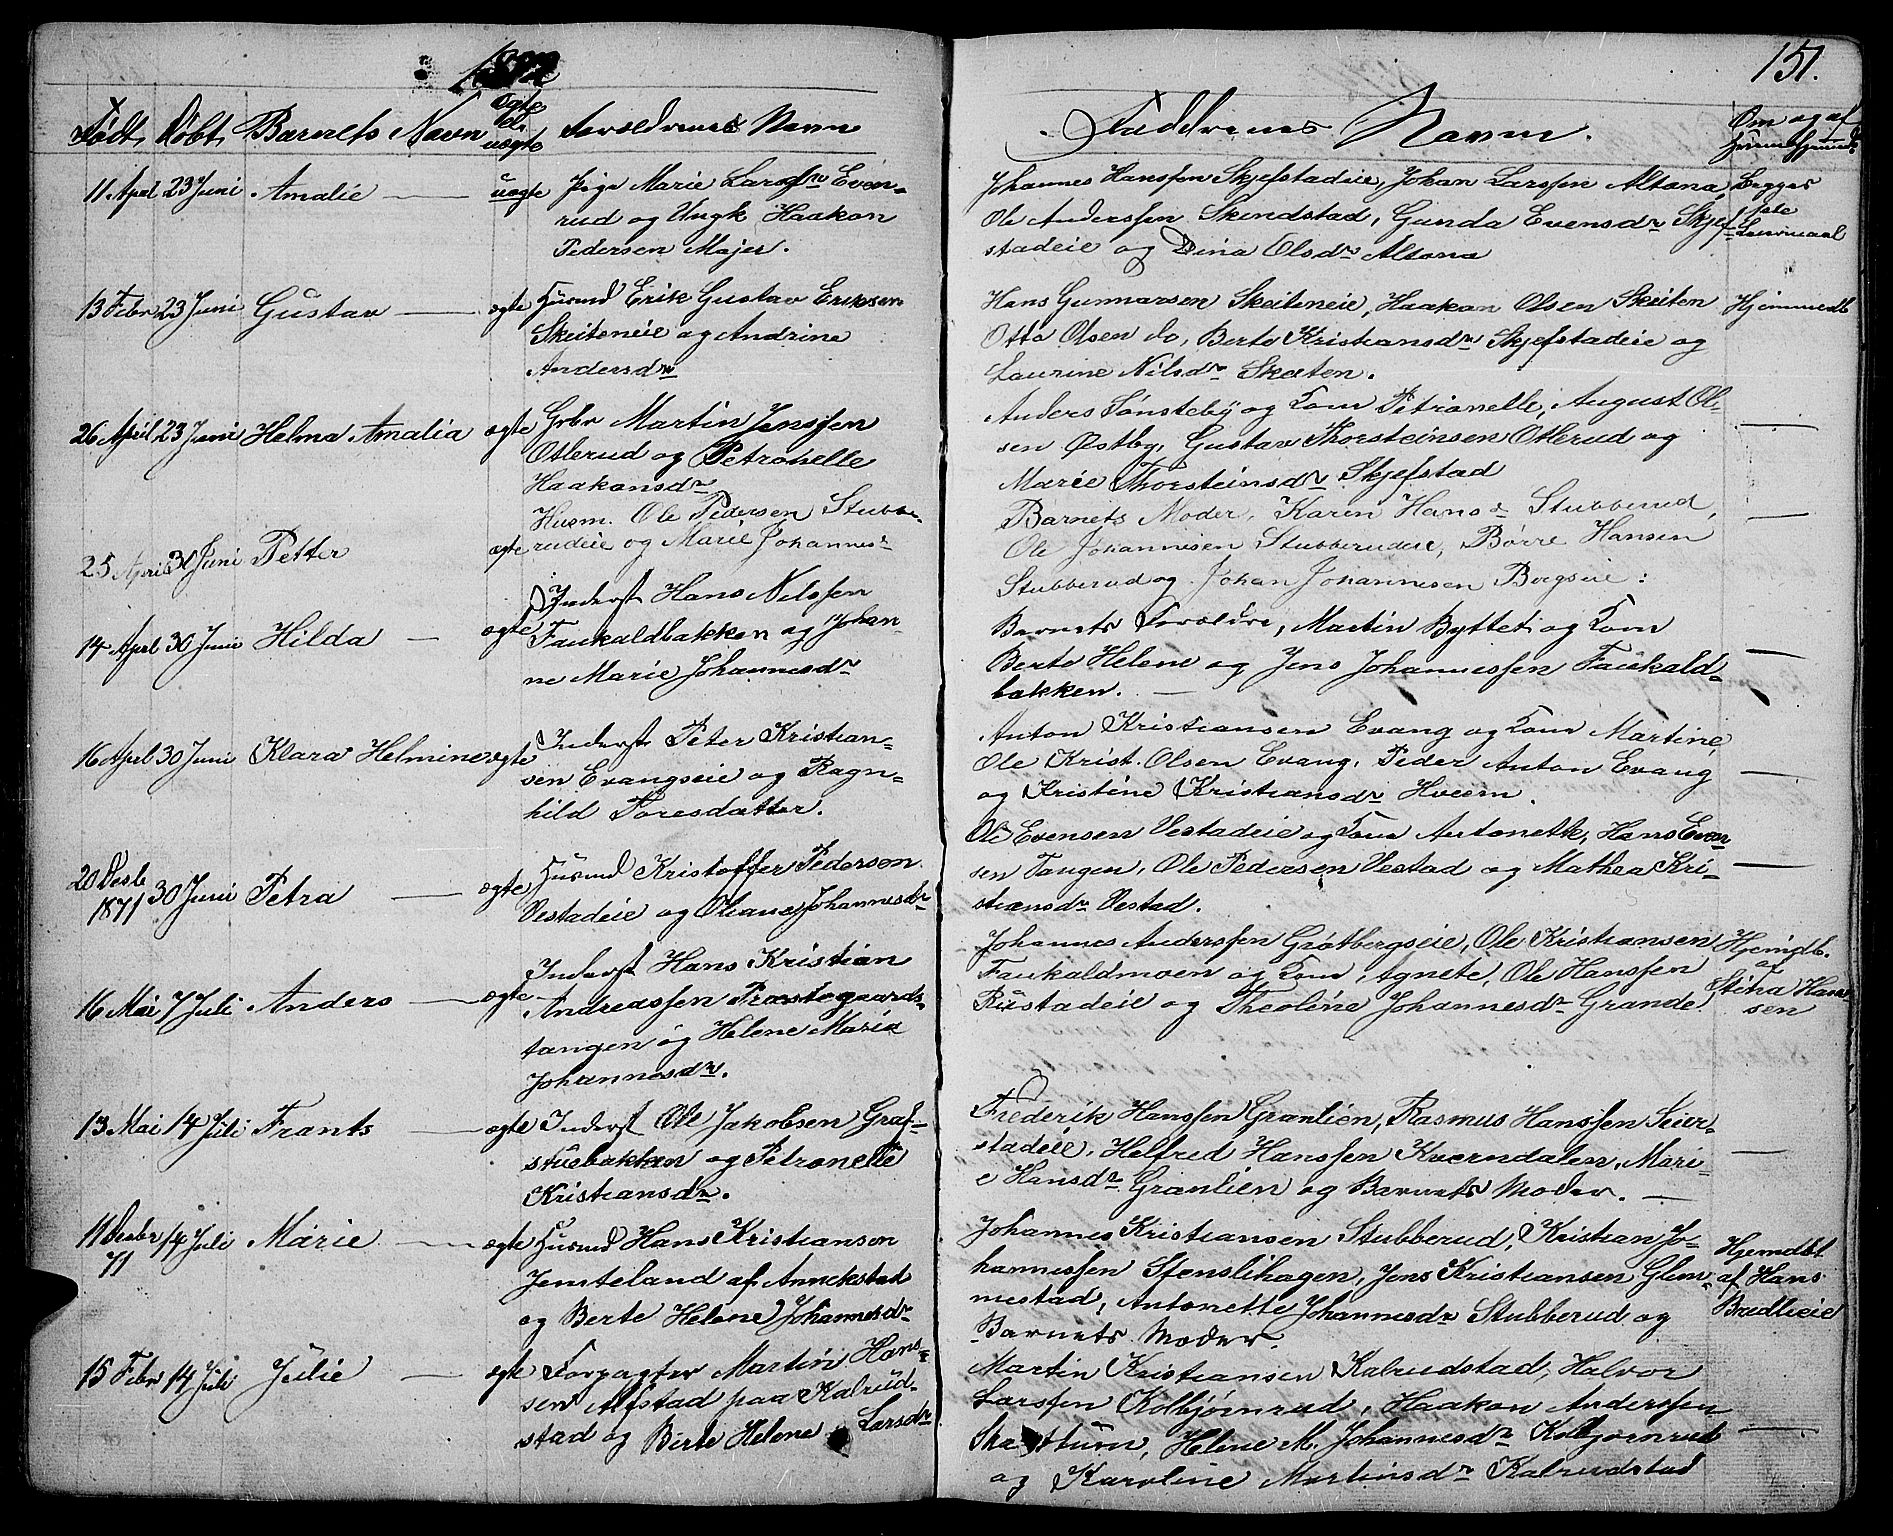 1872
151.
Født Døbt Barnets Navn Ægte el. uægte Forældrenes Navne
Faddernes Navne.
Om og af
11 April 23 Juni Amalie — uægte Pige Marie Larsdr Even-
rud og Ungk Haakon
Pedersen Majer.
Johannes Hanssen Skjefstadeie, Johan Larssen Altona Begges
Ole Anderssen Skindstad, Gunda Evensdr Skjef- 1ste
stadeie og Dina Olsdr Altona Leiermaal
13 Febr 23 Juni Gustav — ægte Husmd Erik Gustav Eriksen
Skeiteneie og Andrine
Andersdr
Hans Gunnarsen Skeiteneie, Haakon Olsen Skeiten Hjemmedb
Otto Olsen do, Berte Kristiansdr Skjefstadeie og
Laurine Nilsdr Skeiten.
26 April 23 Juni Helma Amalia ægte Gbr Martin Jenssen
Otlerud og Petronelle
Haakonsdr
Anders Sønsteby og Kone Petronelle, August Ol-
sen Østby, Gustav Thorsteinsen Otlerud og —
Marie Thorsteinsdr Skjefstad
25 April 30 Juni Petter ægte Husm. Ole Pedersen Stubbe-
rudeie og Marie Johannesdr
Barnets Moder, Karen Hansdr Stubberud, —
Ole Johannesen Stubberudeie, Børre Hansen
Stubberud og Johan Johannesen Bergseie:
14 April 30 Juni Hilda — ægte Inderst Hans Nilssen
Faukaldbakken og Johan-
ne Marie Johannesdr
Barnets Forældre, Martin Byttet og Kone
Berte Helene og Jens Johannessen Faukald- —
bakken. —
16 April 30 Juni Klara Helmine ægte Inderst Peter Kristian-
sen Evangseie og Ragn-
hild Toresdatter.
Anton Kristiansen Evang og Kone Martine
Ole Krist. Olsen Evang, Peder Anton Evang —
og Kristine Kristiansdr Hveem.
20 Desb 1871 30 Juni Petra — ægte Husmd Kristoffer Pedersen
Vestadeie og Oliane Johannesdr
Ole Evensen Vestadeie og Kone Antonette, Hans Even-
sen Tangen, Ole Pedersen Vestad og Mathea Kri- —
stiansdr Vestad.
16 Mai 7 Juli Anders — ægte Inderst Hans Kristian
Andreassen Præstegaards-
tangen og Helene Maria
Johannesdr.
Johannes Anderssen Grøtbergseie, Ole Kristiansen Hjemdb.
Faukaldmoen og Kone Agnete, Ole Hanssen af
Rustadeie og Theoline Johannesdr Grande. Stina Han-
sen
13 Mai 14 Juli Frants — ægte Inderst Ole Jakobsen Graf-
stuebakken og Petronelle
Kristiansdr.
Frederik Hanssen Granlien, Rasmus Hanssen Seier-
stadeie, Helfred Hanssen Kverndalen, Mari- —
e Hansdr Granlien og Barnets Moder. —
11 Desbr 71 14 Juli Marie — ægte Husmd Hans Kristiansen
Jemteland af Annekstad
og Berte Helene Johannesdr
Johannes Kristiansen Stubberud, Kristian Jo-
hannessen Stenslihagen, Jens Kristiansen Glem- Hjemdbt
mestad, Antonette Johannesdr Stubberud og af Hans
Barnets Moder. Brudlieie
15 Febr 14 Juli Julie — ægte Forpagter Martin Hans-
sen Alfstad paa Kalrud-
stad og Berte Helene Larsdr
Martin Kristiansen Kalrudstad, Halvor
Larssen Kolbjørnrud, Haakon Anderssen
Helene M. Johannesdr Kolbjørnrud —
og Karoline Martinsdr Kalrudstad